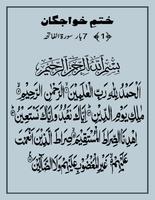 ختم خواجگان
﴿1﴾ 7 بار سورۃ الفاتحہ
بِسْمِ اللّٰهِ الرَّحْمٰنِ الرَّحِيْمِ
اَلْحَمْدُ لِلّٰهِ رَبِّ الْعٰلَمِيْنَ ۙ الرَّحْمٰنِ الرَّحِيْمِ ۙ
مٰلِكِ يَوْمِ الدِّيْنِ ؕ اِيَّاكَ نَعْبُدُ وَاِيَّاكَ نَسْتَعِيْنُ ؕ
اِهْدِنَا الصِّرَاطَ الْمُسْتَقِيْمَ ۙ صِرَاطَ الَّذِيْنَ اَنْعَمْتَ
عَلَيْهِمْ ۙ غَيْرِ الْمَغْضُوْبِ عَلَيْهِمْ وَلَا الضَّآلِّيْنَ